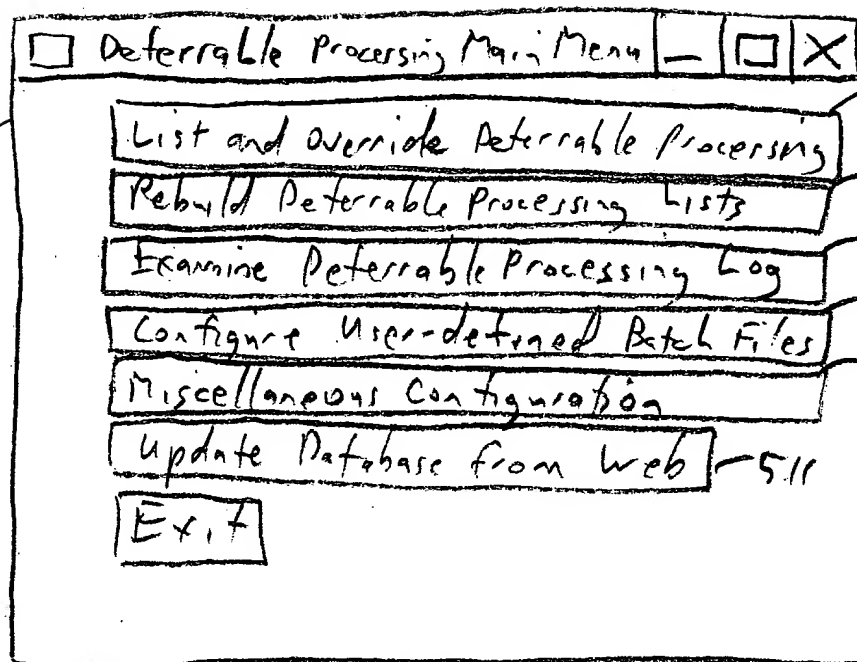 Deferrable Processing Main Menu
List and Override Deferrable Processing
Rebuild Deferrable Processing Lists
Examine Deferrable Processing Log
Configure User-defined Batch Files
Miscellaneous Configuration
Update Database from Web 511
Exit